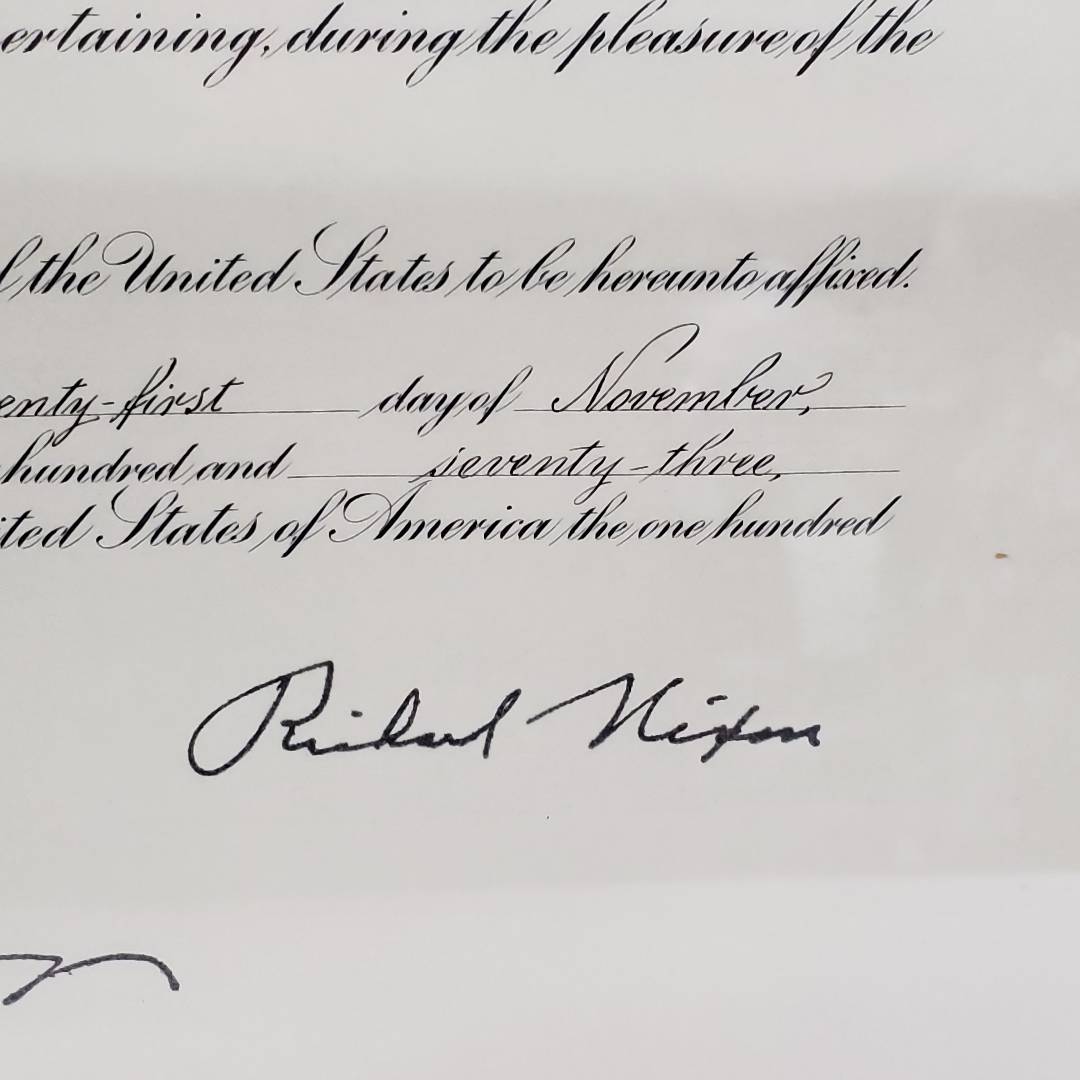 ertaining, during the pleasure of the
the United States to be hereunto affixed.
enty-first day of November,
hundred and seventy-three,
ited States of America the one hundred
Richard Nixon